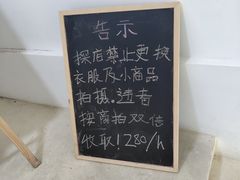 告示
探店禁止更换
衣服及小商品
拍摄.违者
按商拍双倍
收取!280/h